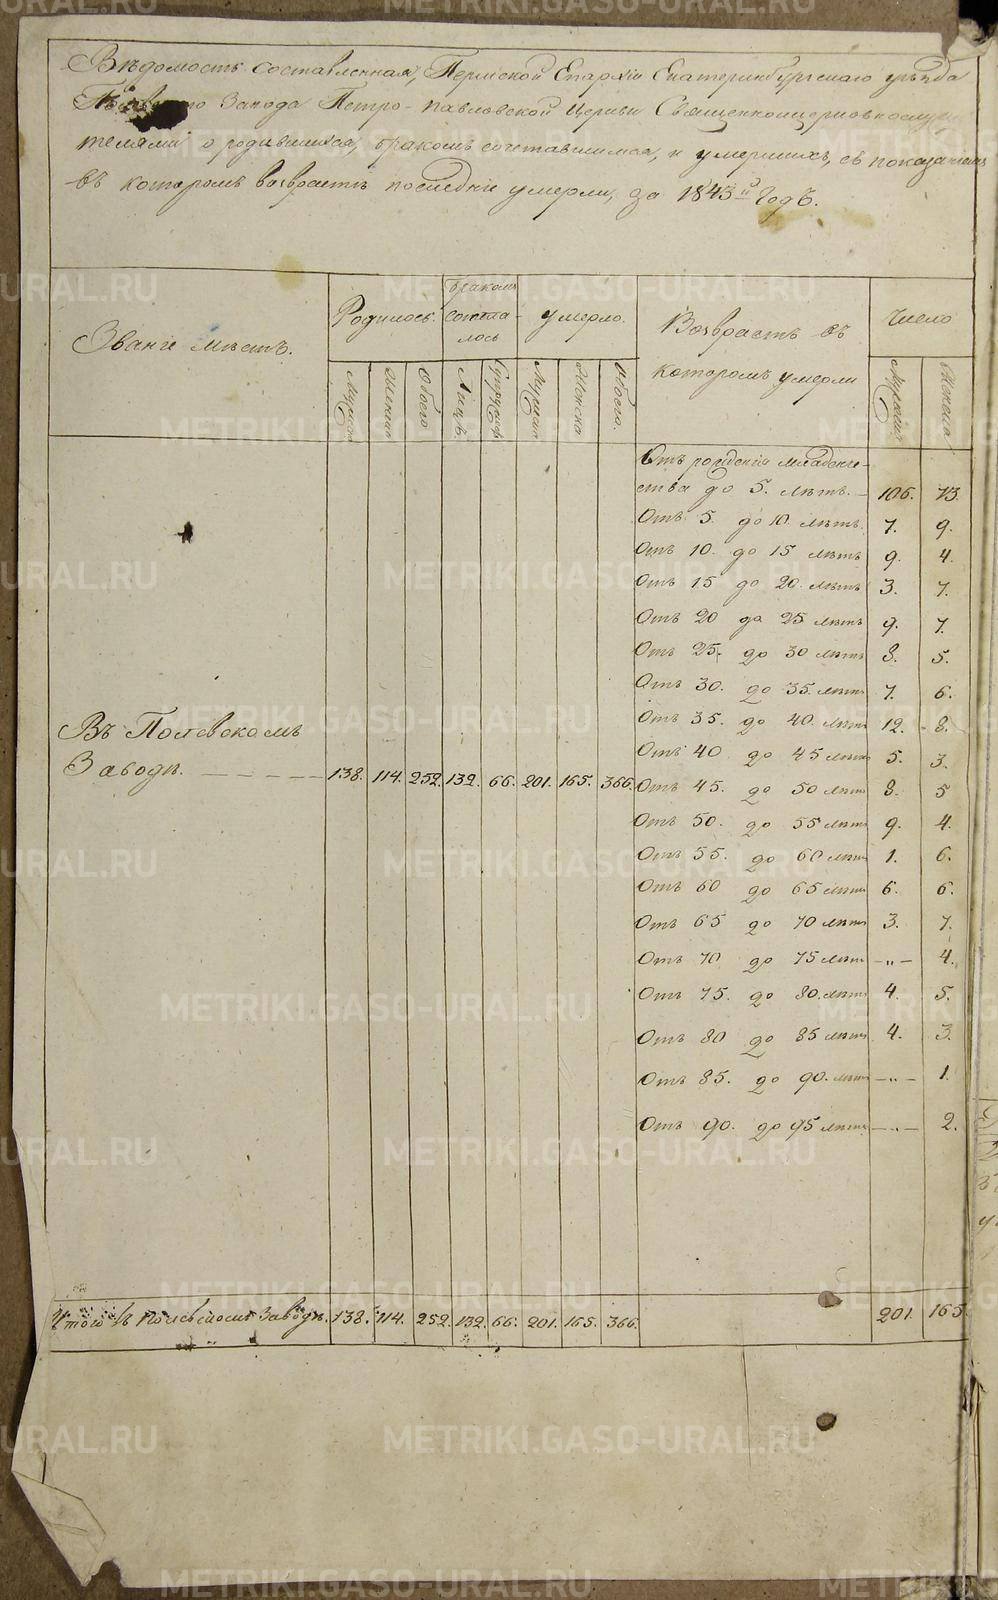 Вѣдомость составленная, Пермской Епархіи Екатеринбургскаго уѣзда
Завода Петро-павловской Церкви Священноцерковнослужи
телями о родившихся, бракомъ сочетавшихся, и умершихъ, съ показаніемъ
въ которомъ возврастѣ последніе умерли, за 1843й Годъ.
Званіе мѣстъ.
Родилось.
бракомъ сочета-лось
умерло.
Возврастъ въ которомъ умерли
Число
Мужска
Женска
Обоего
Лицъ
Супружс
Мужска
Женска
Обоего.
Мужска
Женска
Отъ рожденія младенче-
ства до 5. лѣтъ. – 106. 73.
Отъ 5. до 10. лѣтъ. 7. 9.
Отъ 10. до 15 лѣтъ 9. 4.
Отъ 15 до 20. лѣтъ 3. 7.
Отъ 20 до 25 лѣтъ 9. 7.
Отъ 25. до 30 лѣтъ 8. 5.
Отъ 30. до 35. лѣтъ 7. 6.
Отъ 35. до 40. лѣтъ 12. - 8.
Отъ 40 до 45 лѣтъ 5. 3.
Въ Полевскомъ
Заводѣ. – – – – – 138. 114. 252. 132. 66. 201. 165. 366.
Отъ 45. до 50 лѣтъ 8. 5
Отъ 50. до 55 лѣтъ 9. 4.
Отъ 55. до 60 лѣтъ 1. 6.
Отъ 60 до 65 лѣтъ 6. 6.
Отъ 65 до 70 лѣтъ 3. 7.
Отъ 70 до 75 лѣтъ – „ – 4.
Отъ 75. до 80. лѣтъ 4. 5.
Отъ 80 до 85 лѣтъ 4. 3.
Отъ 85. до 90. лѣтъ – „ – 1.
Отъ 90. до 95 лѣтъ – „ – 2.
Итого въ Полевскомъ Заводѣ. 138. 114. 252. 132. 66. 201. 165. 366. 201. 165.